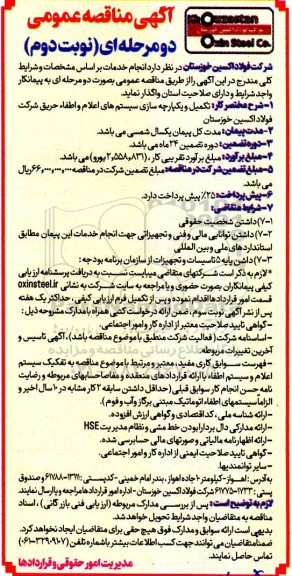 Khouzestan
Oxin Steel Co.
آگهی مناقصه عمومی
دو مرحله ای (نوبت دوم)
شرکت فولاد اکسین خوزستان در نظر دارد انجام خدمات بر اساس مشخصات و شرایط
کلی مندرج در این آگهی را از طریق مناقصه عمومی بصورت دو مرحله ای به پیمانکار
واجد شرایط و دارای صلاحیت استان واگذار نماید.
۱- شرح مختصر کار: تکمیل و یکپارچه سازی سیستم های اعلام و اطفاء حریق شرکت
فولاد اکسین خوزستان
۲- مدت پیمان: مدت کل پیمان یکسال شمسی می باشد.
۳- دوره تضمین: دوره تضمین ۲۴ ماه می باشد.
۴- مبلغ برآورد: مبلغ برآورد تقریبی کار، (۲,۵۵۸,۸۳۱ یورو) می باشد.
۵- مبلغ تضمین شرکت در مناقصه: مبلغ تضمین شرکت در مناقصه ۶۶,۰۰۰,۰۰۰,۰۰۰ ریال
می باشد.
۶- پیش پرداخت: ۲۵٪ پیش پرداخت دارد.
۷- شرایط متقاضی:
۷-۱) داشتن شخصیت حقوقی
۷-۲) داشتن توانایی مالی و فنی و تجهیزاتی جهت انجام خدمات این پیمان مطابق
استانداردهای ملی و بین المللی
۷-۳) داشتن پایه ۵ تاسیسات و تجهیزات از سازمان برنامه بودجه:
*لازم به ذکر است شرکتهای متقاضی میبایست نسبت به دریافت پرسشنامه ارزیابی
کیفی پیمانکاران بصورت حضوری و یا مراجعه به سایت شرکت به نشانی oxinsteel.ir
قسمت امور قرارداد ها اقدام نموده و پس از تکمیل فرم ارزیابی کیفی، حداکثر یک هفته
پس از نشر آگهی نوبت سوم، ضمن ارائه درخواست کتبی همراه با مدارک مشروحه ذیل:
- گواهی تایید صلاحیت معتبر از اداره کار و امور اجتماعی.
- اساسنامه شرکت (فعالیت شرکت منطبق با موضوع مناقصه باشد)، آگهی تاسیس و
آخرین تغییرات مربوطه.
- فهرست سوابق کاری مفید، معتبر و مرتبط با موضوع مناقصه به تفکیک سیستم
اعلام و سیستم اطفاء با ارائه قراردادهای منعقده و مفاصاحسابهای مربوطه و رضایت
نامه حسن انجام کار سوابق قبلی (حداقل داشتن سابقه ۲ کار مشابه در ۱۰ سال اخیر و
الزاما سیستمهای اطفاء اتوماتیک مبتنی بر گاز و آب و فوم).
- ارائه شناسه ملی، کد اقتصادی و گواهی ارزش افزوده.
- ارائه مدارکی دال بر دارا بودن خط مشی و نظام مدیریت HSE
- ارائه اظهارنامه مالیاتی و صورتهای مالی حسابرسی شده.
- گواهی تایید صلاحیت ایمنی از اداره کار و امور اجتماعی.
- سایر توانمندیها.
به آدرس: اهواز - کیلومتر ۱۰ جاده اهواز، بندر امام خمینی - کدپستی: ۱۳۱۱-۶۱۷۸۸ و صندوق
پستی: ۱۷۳۳-۶۱۷۷۵ شرکت فولاد اکسین خوزستان - اداره امور قراردادها مراجعه و یا ارسال نمایند.
لازم به توضیح است: پس از بررسی مدارک مربوطه (ارزیابی فنی بازرگانی)، اسناد
مناقصه به متقاضیان واجد شرایط تحویل خواهد شد.
بدیهی است ارائه سوابق و مدارک فوق هیچ حقی برای متقاضیان ایجاد نخواهد کرد.
ضمنا متقاضیان می توانند جهت کسب اطلاعات بیشتر با شماره تلفن (
تماس حاصل نمایند.
مدیریت امور حقوقی و قراردادها